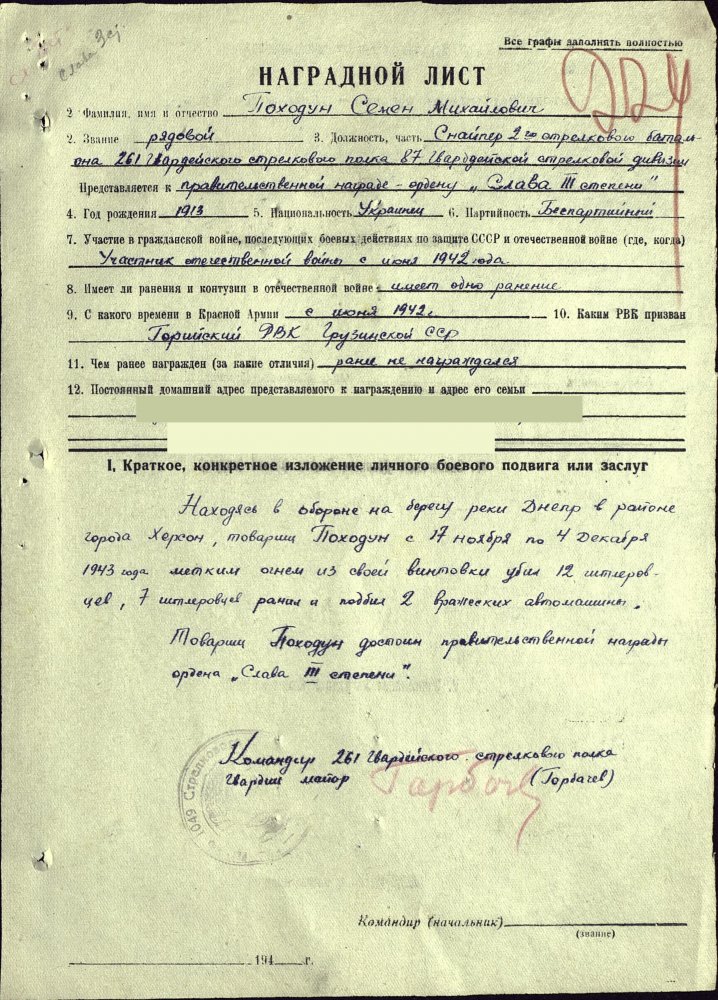 Слава 3ст
Все графы заполнять полностью
НАГРАДНОЙ ЛИСТ
224
2 Фамилия, имя и отчество Походун Семен Михайлович
2. Звание рядовой 3. Должность, часть Снайпер 2го стрелкового баталь-
она 261 Гвардейского стрелкового полка 87 Гвардейской стрелковой дивизии
Представляется к правительственной награде - ордену „Слава III степени"
4. Год рождения 1913 5. Национальность Украинец 6. Партийность Беспартийный
7. Участие в гражданской войне, последующих боевых действиях по защите СССР и отечественной войне (где, когда)
Участник отечественной войны с июня 1942 года.
8. Имеет ли ранения и контузии в отечественной войне - имеет одно ранение
9. С какого времени в Красной Армии с июня 1942 г. 10. Каким РВК призван
Горийский РВК Грузинской ССР
11. Чем ранее награжден (за какие отличия) ранее не награждался
12. Постоянный домашний адрес представляемого к награждению и адрес его семьи
I, Краткое, конкретное изложение личного боевого подвига или заслуг
Находясь в обороне на берегу реки Днепр в районе
города Херсон, товарищ Походун с 17 ноября по 4 декабря
1943 года метким огнем из своей винтовки убил 12 гитлеров-
цев, 7 гитлеровцев ранил и подбил 2 вражеских автомашины.
Товарищ Походун достоин правительственной награды
ордена „Слава III степени".
Командир 261 Гвардейского стрелкового полка
Гвардии майор Горбачев (Горбачев)
1049 Стрелковый
Командир (начальник)
(звание)
194 г.